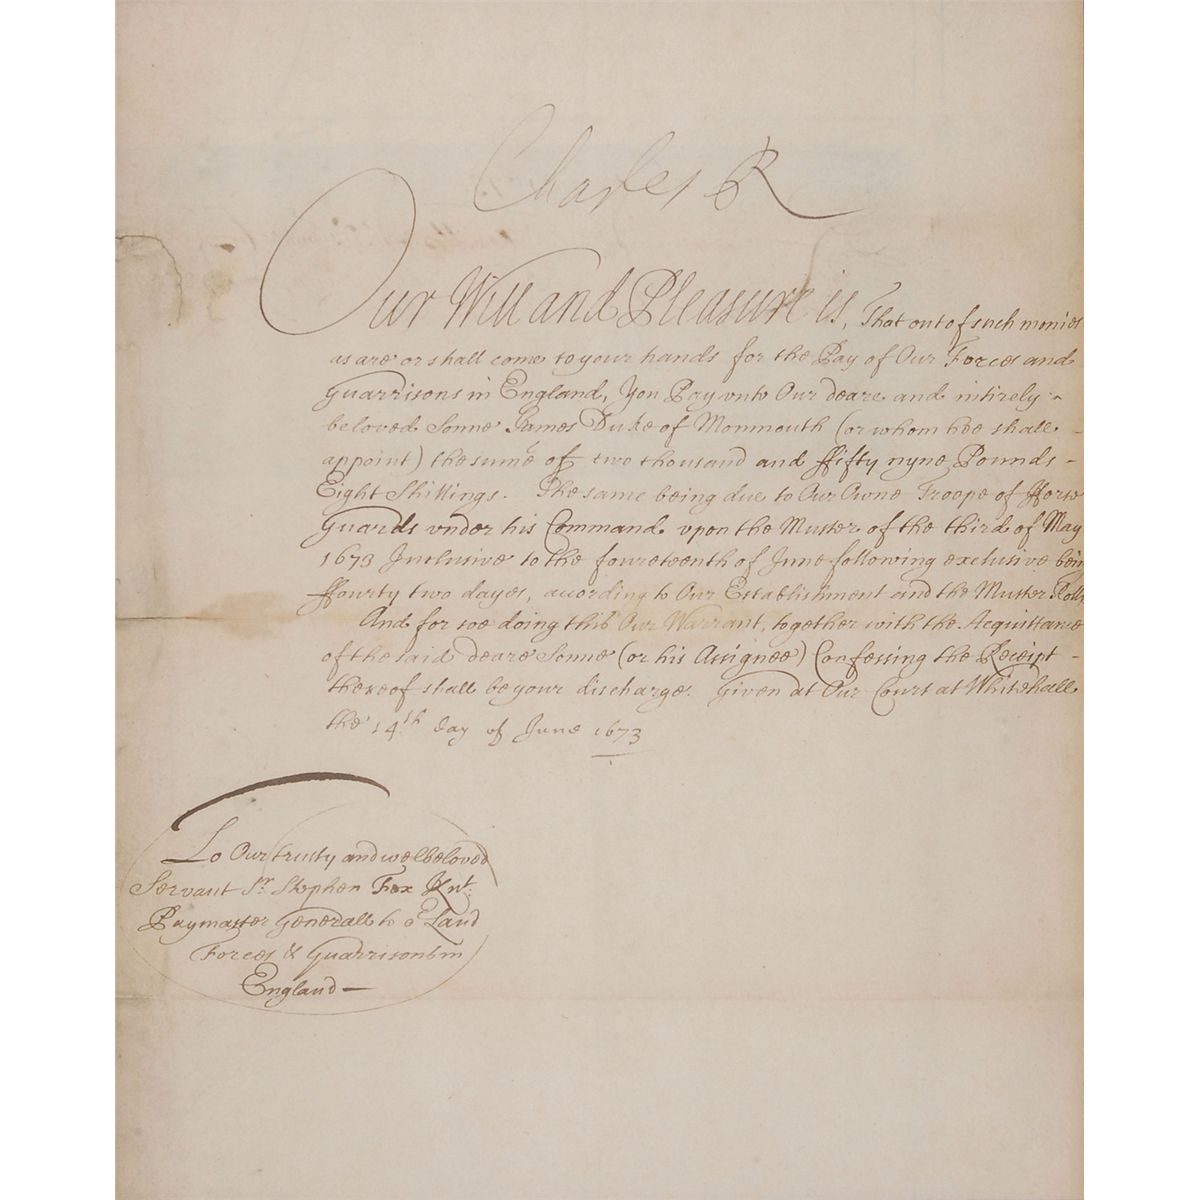 Charles R
Our Will and Pleasure is, That out of such monies
as are or shall come to your hands for the Pay of Our Forces and
Guarrisons in England, You Pay vnto Our deare and intirely
beloved Sonne James Duke of Monmouth (or whom hee shall
appoint) the sume of two thousand and ffifty nyne Pounds
Eight Shillings. The same being due to Our Owne Troope of Horse
Guards vnder his Command vpon the Muster of the third of May
1673 Inclusive to the foureteenth of June following exclusive being
ffourty two dayes, according to Our Establishment and the Muster Rolls
And for soe doing this Our Warrant, together with the Acquittance
of the said deare Sonne (or his Assignee) Confessing the Receipt
thereof shall be your discharge. Given at Our Court at Whitehall
the 14th day of June 1673
To Our trusty and welbeloved
Servant Sr. Stephen Fox Knt:
Paymaster Generall to Land
Forces & Guarrisons in
England